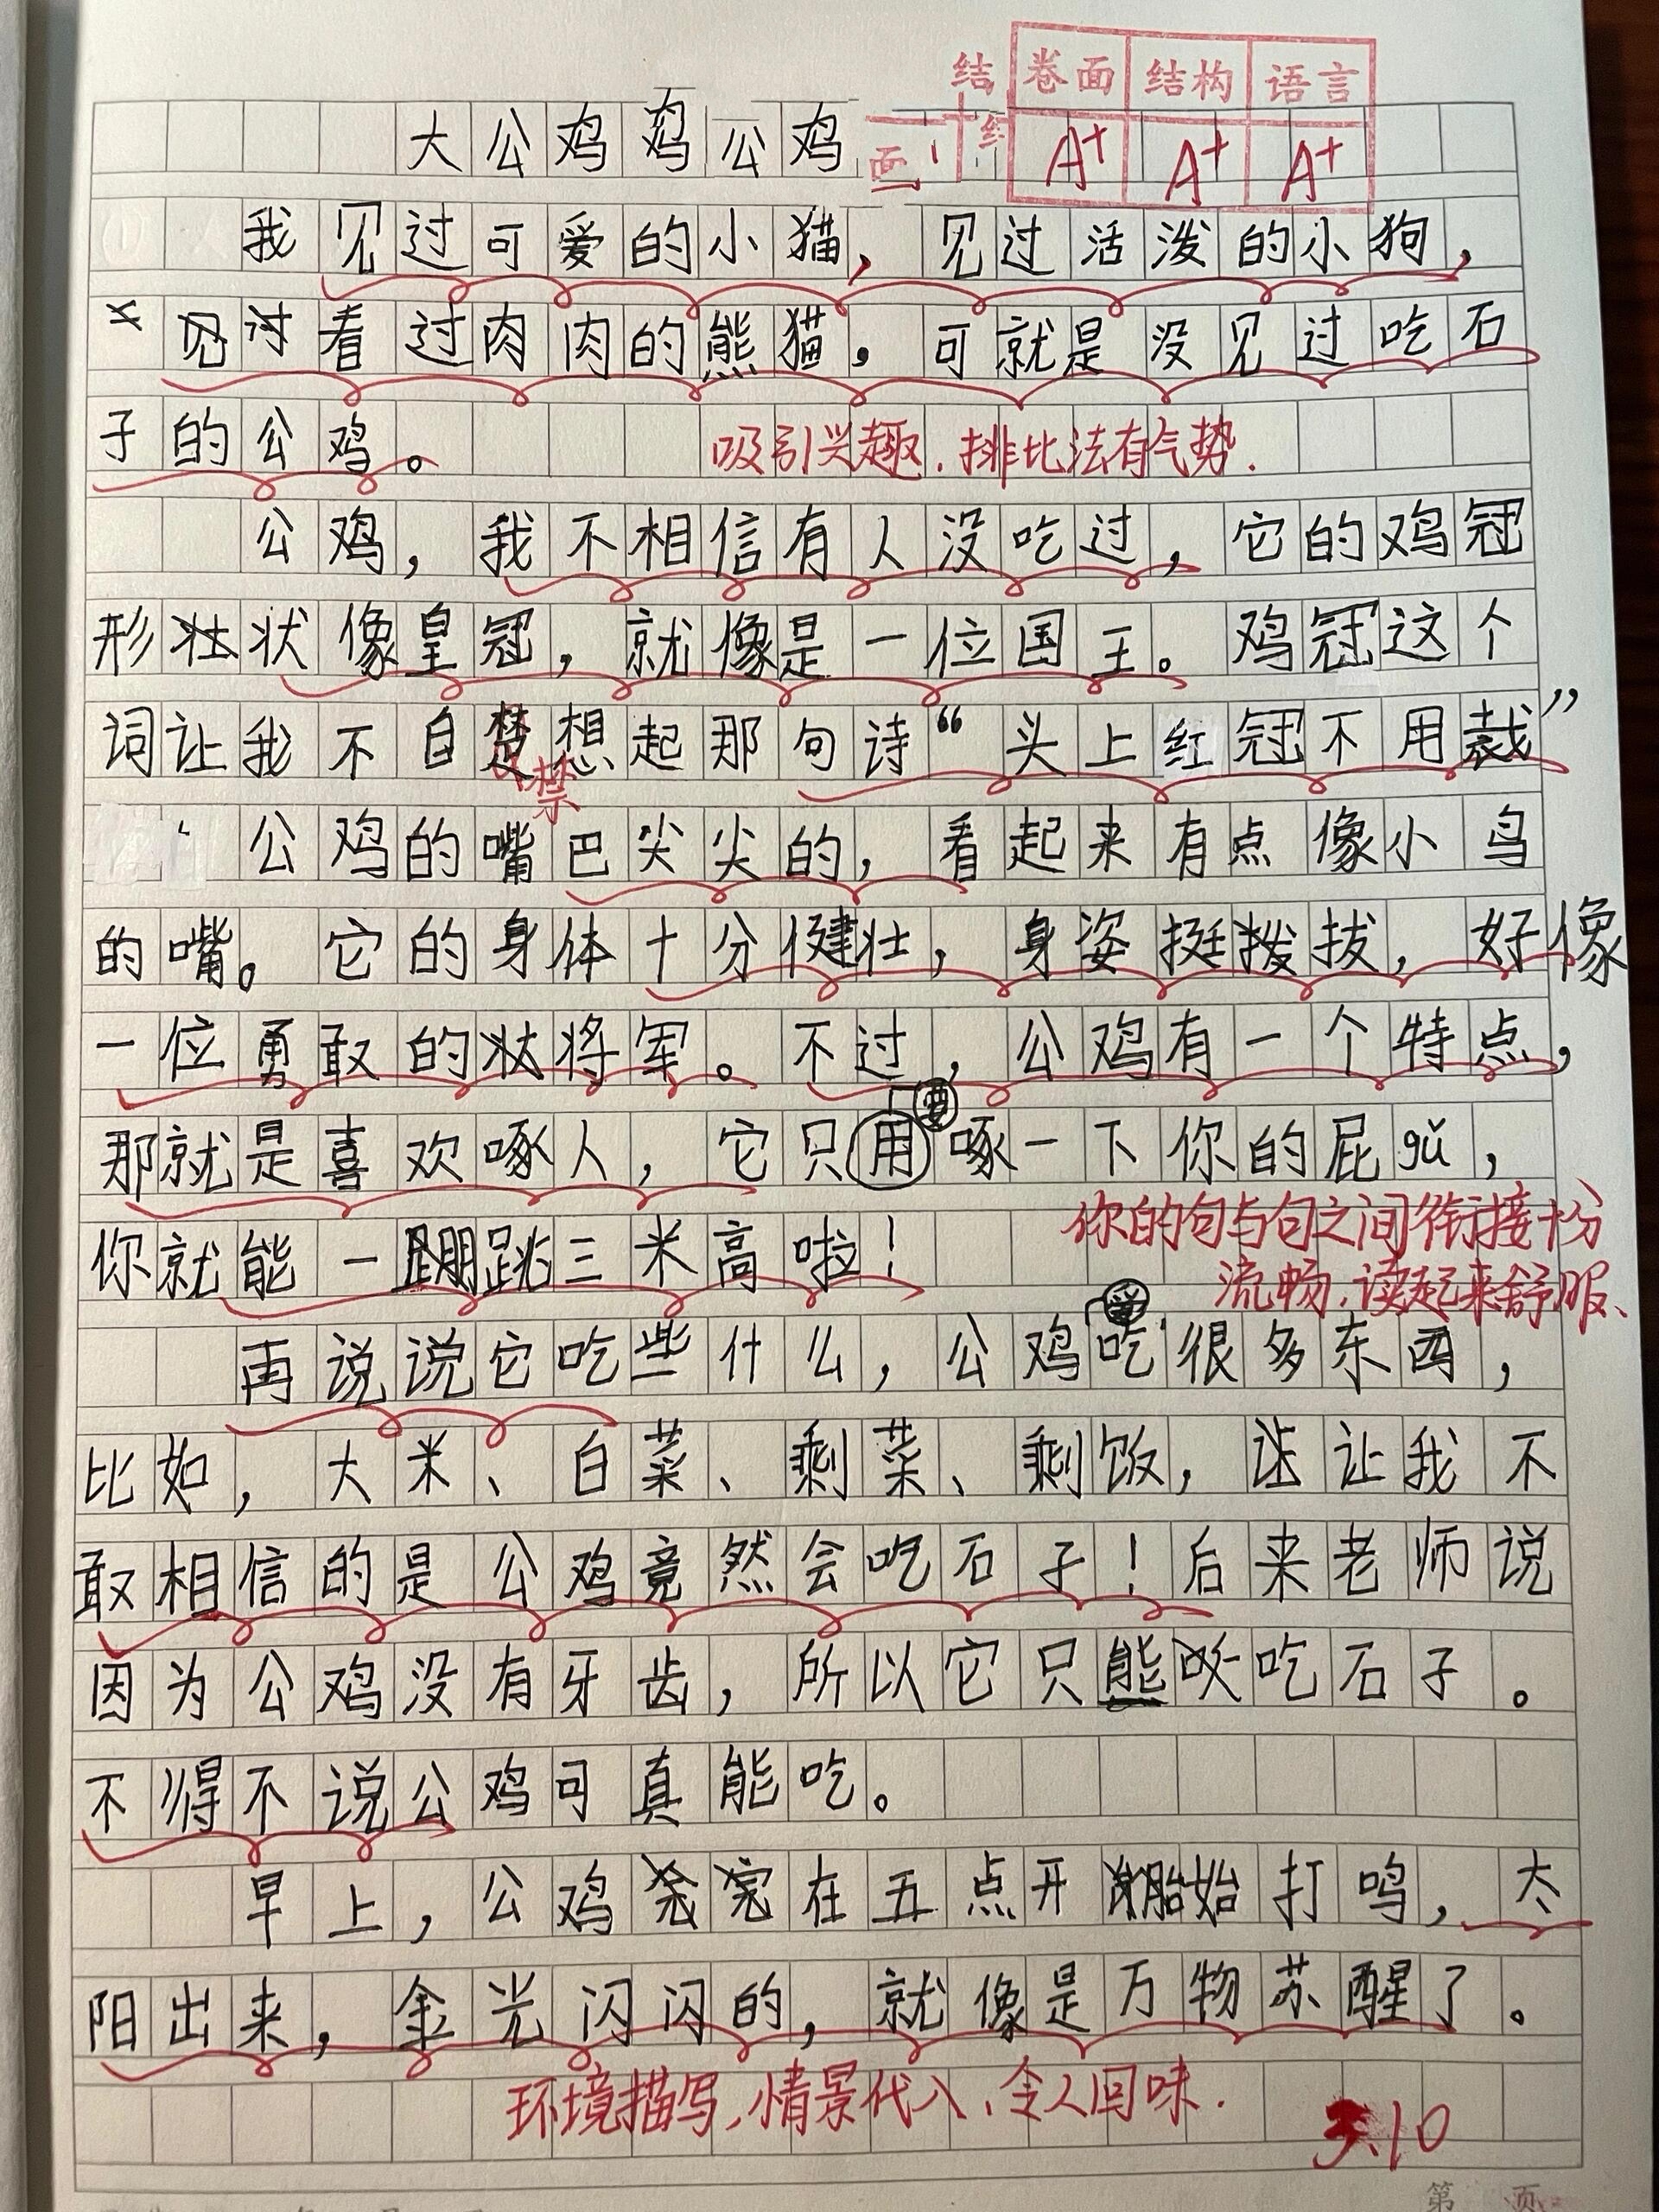 结 卷面 结构 语言
大公鸡鸡公鸡
面 A+ A+ A+
我见过可爱的小猫，见过活泼的小狗，
见过看过肉肉的熊猫，可就是没见过吃石
子的公鸡。
吸引兴趣.排比法有气势.
公鸡，我不相信有人没吃过，它的鸡冠
形壮状像皇冠，就像是一位国王。鸡冠这个
词让我不自楚想起那句诗“头上红冠不用裁”
禁
公鸡的嘴巴尖尖的，看起来有点像小鸟
的嘴。它的身体十分健壮，身姿挺拨拔，好像
一位勇敢的状将军。不过，公鸡有一个特点，
要
那就是喜欢啄人，它只用啄一下你的屁gǔ，
你的句与句之间衔接十分
你就能一蹦跳三米高啦！
流畅.读起来舒服、
再说说它吃些什么，公鸡吃很多东西，
比如，大米、白菜、剩菜、剩饭，让我不
敢相信的是公鸡竟然会吃石子！后来老师说
因为公鸡没有牙齿，所以它只能吃石子。
不得不说公鸡可真能吃。
早上，公鸡在五点开始打鸣，太
阳出来，金光闪闪的，就像是万物苏醒了。
环境描写，情景代入、令人回味.
3.10
第 页